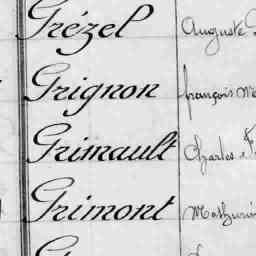 Grézel Auguste
Grignon françois
Grimault Charles
Grimont Mathurin